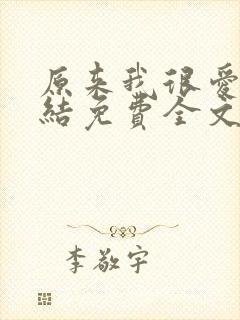 原来我很爱
结免费全文
李敬宇